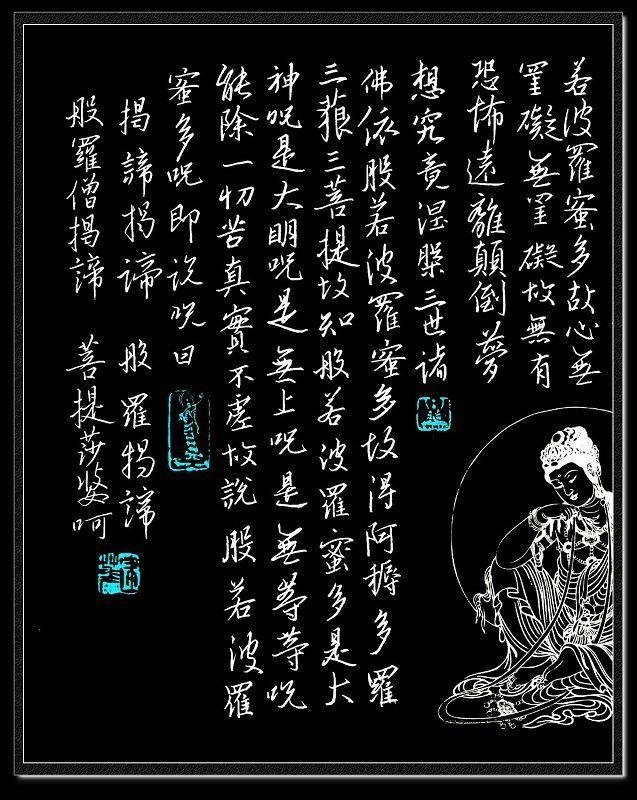 若波羅蜜多故心無
罣礙無罣礙故無有
恐怖遠離顛倒夢
想究竟涅槃三世诸
佛依般若波羅蜜多故得阿耨多羅
三藐三菩提故知般若波羅蜜多是大
神呪是大明呪是無上呪是無等等呪
能除一切苦真實不虛故說般若波羅
蜜多呪即说呪曰
揭諦揭諦 般羅揭諦
般羅僧揭諦 菩提莎婆呵